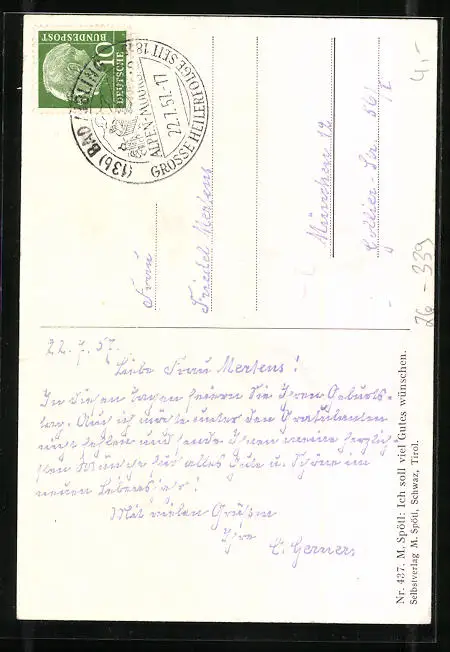 10
DEUTSCHE
BUNDESPOST
(13b) BAD
GROSSE HEILERFOLGE SEIT 18
22.7.57.-17
ALPEN-MOOR
4,-
Frau
Friedel Mertens
München 12
26 - 339
22.7.57.
Liebe Frau Mertens!
In diesen Tagen feiern Sie Ihren Geburts-
tag. Auch ich möchte unter den Gratulanten
nicht fehlen und sende Ihnen meine herzlich-
sten Wünsche für alles Gute u. Schöne im
neuen Lebensjahr!
Mit vielen Grüßen
Ihre
Nr. 437. M. Spötl: Ich soll viel Gutes wünschen.
Selbstverlag M. Spötl, Schwaz, Tirol.